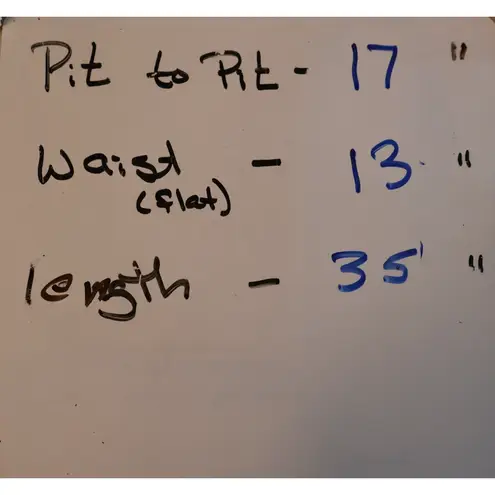 Pit to Pit - 17 "
Waist - 13 "
(flat)
length - 35 "